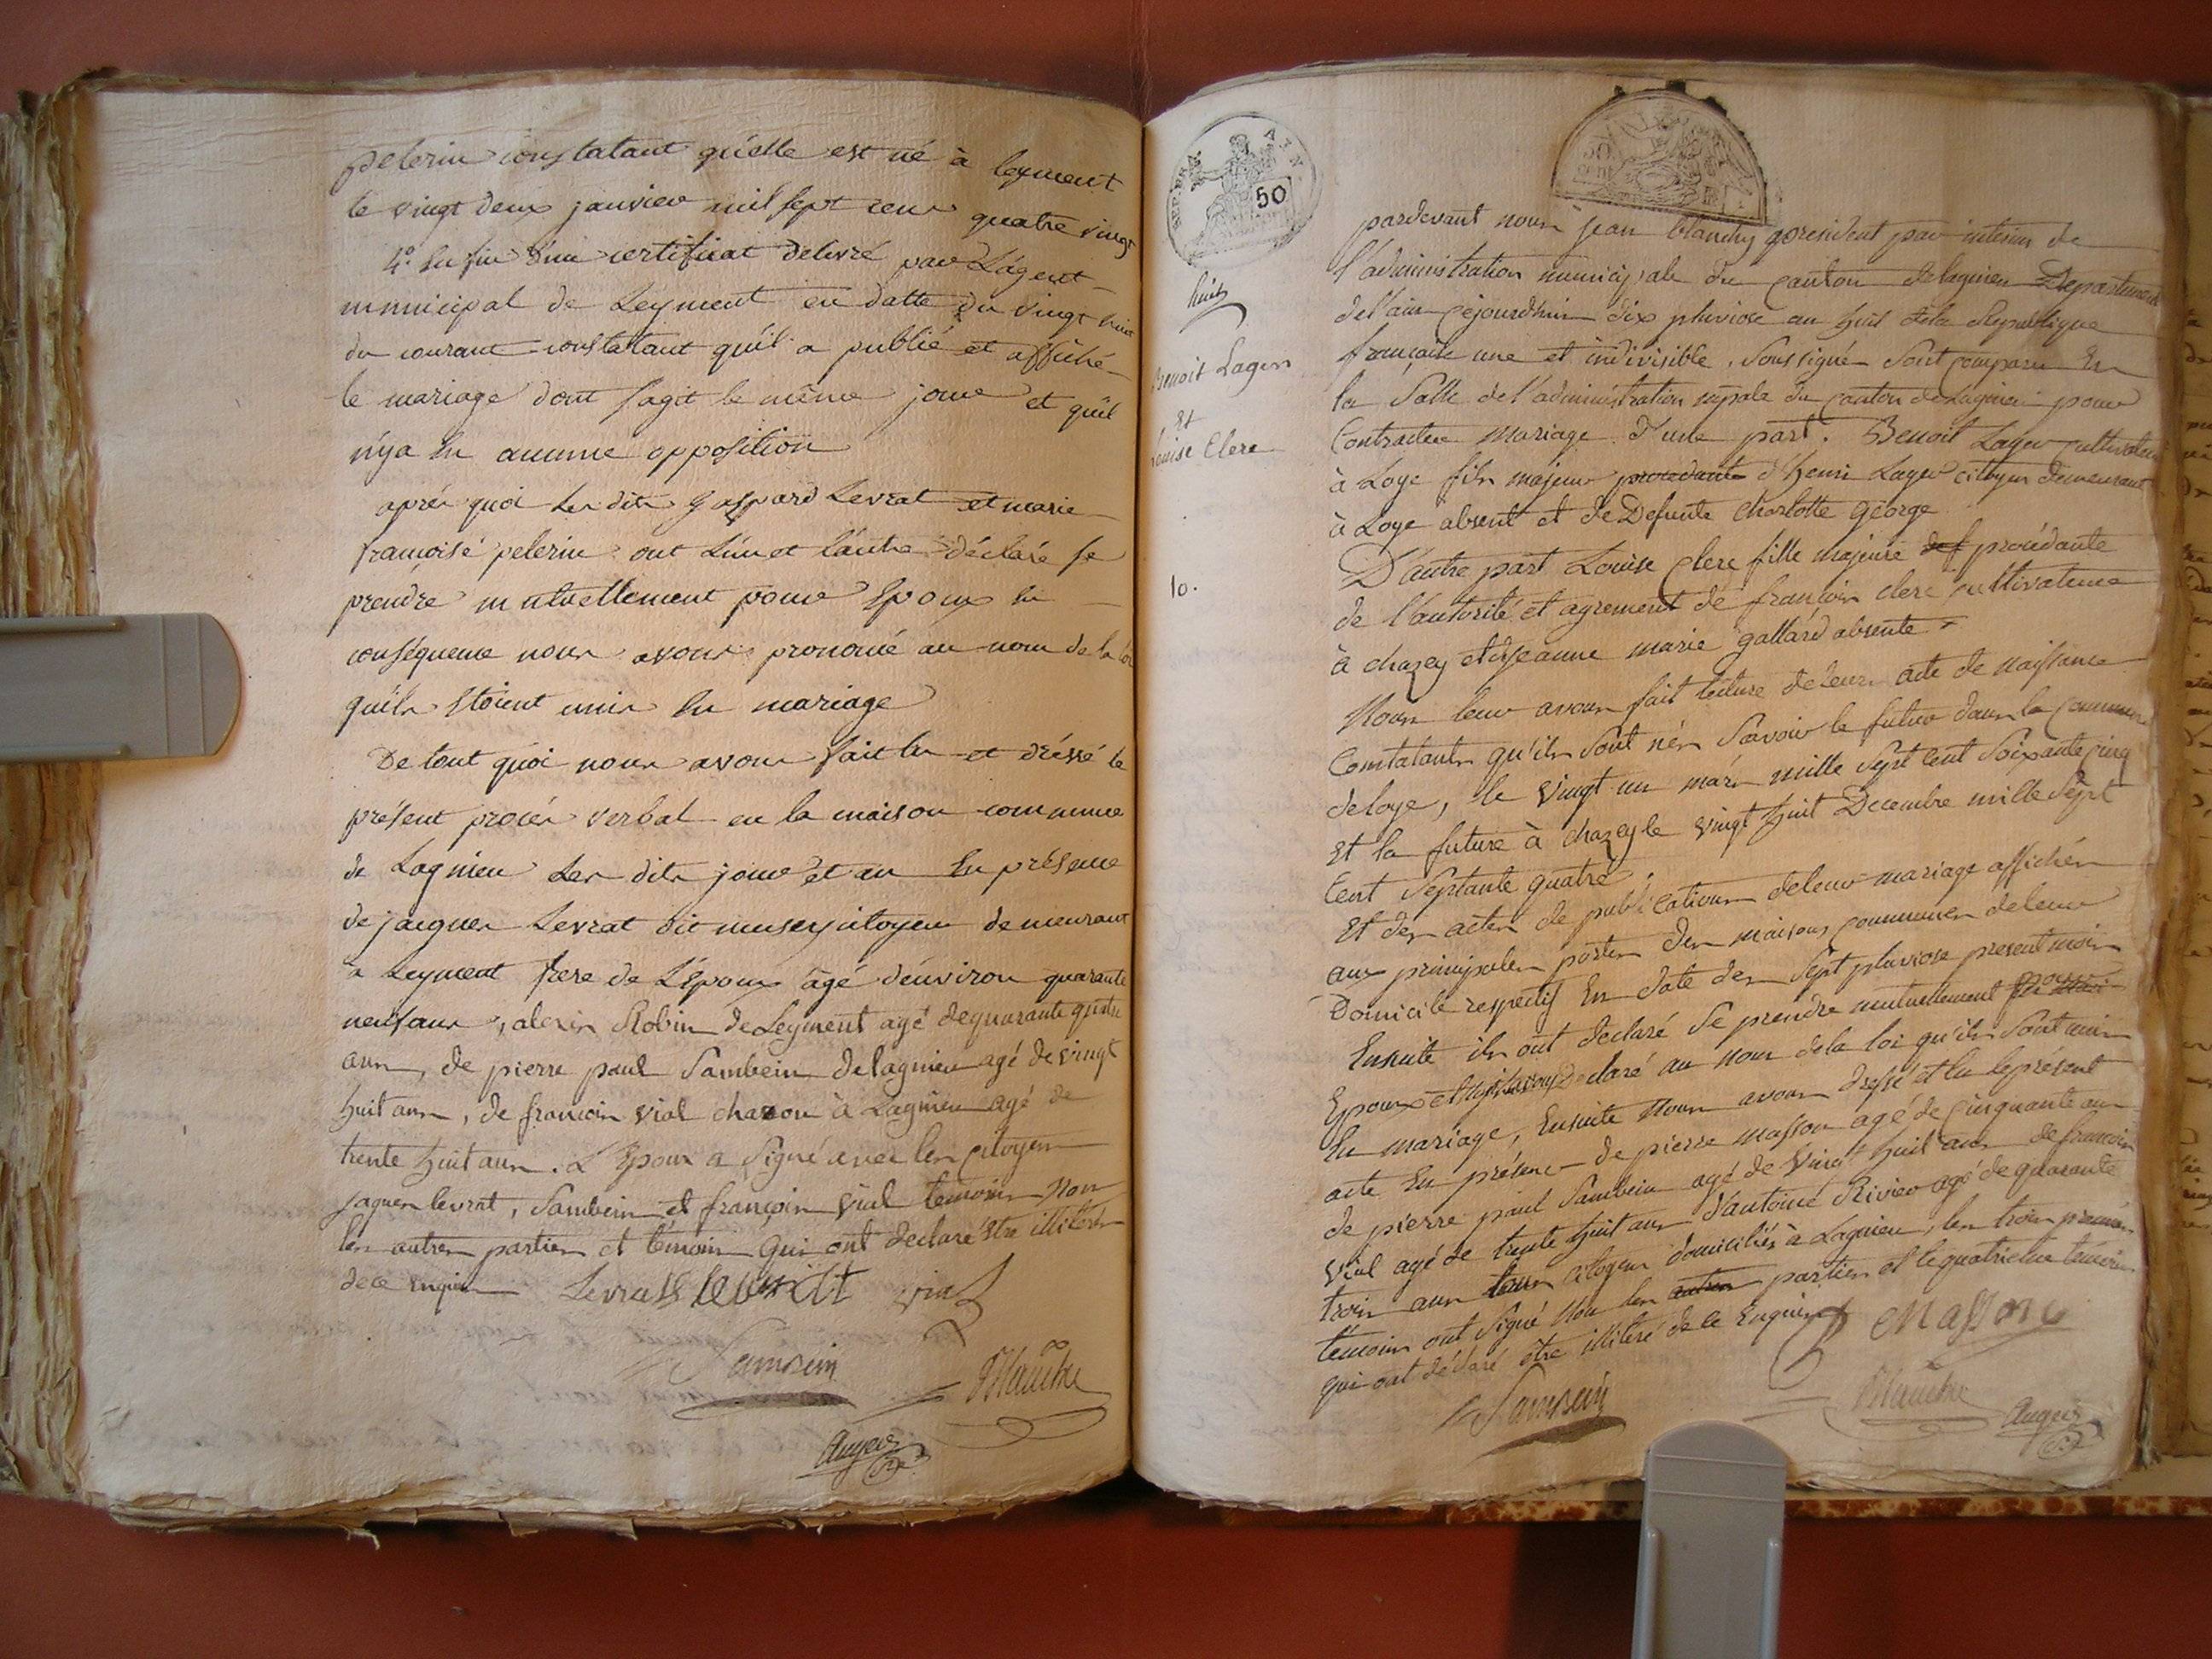 pelerin constatant qu'elle est né à leyment
le vingt deux janvier mil sept cens quatre vingt
4.° En fin d'un certificat delivré par L'agent
municipal de Leyment en datte du vingt huit
du courant constatant qu'il a publié et affiché
le mariage dont s'agit le même jour et qu'il
n'ya eu aucune opposition
après quoi Les dits gaspard Levrat et marie
françoise pelerin ont L'un et l'autre déclaré se
prendre mutuellement pour Epoux En
conséquence nous avons prononcé au nom de la loi
qu'ils Etoient unis En mariage
De tout quoi nous avons fait lu et dréssé le
présent procès verbal en la maison commune
de Lagnieu Les dits jour et an En présence
de jacques Levrat dit musey citoyen demeurant
à Leyment frere de L'époux âgé d'environ quarante
neuf ans, alexis Robin de Leyment agé de quarante quatre
ans, de pierre paul Sambein de lagnieu agé de vingt
huit ans, de françois vial charon à Lagnieu agé de
trente huit ans. L'Epoux a signé avec les citoyens
jaques levrat, Sambein et françois vial temoins Non
les autres parties et témoin qui ont declaré être illitérés
de ce enquis Levrat levrat vial
Sambein
Blanchy
Auger
SEP. DE L' AIN
50
huit
Benoit Lager
Et
Louise Clerc
10.
pardevant nous Jean blanchy président par interim de
l'administration municipale du canton de lagnieu Departement
de l'ain cejourdhuis dix pluviose an huit de la Republique
française une et indivisible. Soussigné Sont comparu En
la Salle de l'administration mpale du canton de Lagnieu pour
Contracter mariage d'une part. Benoit Lager cultivateur
à Loye fils majeur procedante d'henri Lager citoyen demeurant
à Loye absent et de Defunte Charlotte George
D'autre part Louise Clerc fille majeure def procédante
de l'autorité et agrement de françois clerc cultivateur
à chazey et de jeanne marie gallard absente
Nous leur avons fait lecture de leurs acte de naissance
Constatants qu'ils sont nés Savoir le futur dans la commune
de loye, le vingt un mars mille Sept cent Soixante cinq
Et la future à chazey le vingt huit Decembre mille Sept
Cent Septante quatre.
Et des actes de publications de leur mariage affichés
aux principales portes des maisons communes de leur
Domicile respectif En date des Sept pluviose present mois
Ensuite ils ont declaré Se prendre mutuellement pour
Epoux et Nous avons Declaré au nom de la loi qu'ils Sont unis
En mariage, Ensuite Nous avons dressé et lu le présent
acte En présence de pierre masson agé de cinquante ans
de pierre paul Sambein agé de vingt huit ans de françois
vial agé de trente huit ans d'antoine Rivier agé de quarante
trois ans tous citoyens domiciliés à Lagnieu, les trois premiers
temoins ont signé Non les autres parties et le quatrieme témoin
qui ont déclaré être illiteré de ce Enquis
Masson
Sambein
Blanchy
Auger